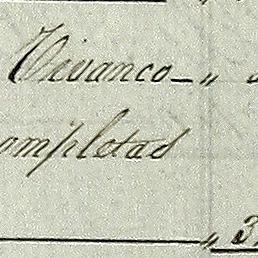 Vivanco — "
ompletas
" 3